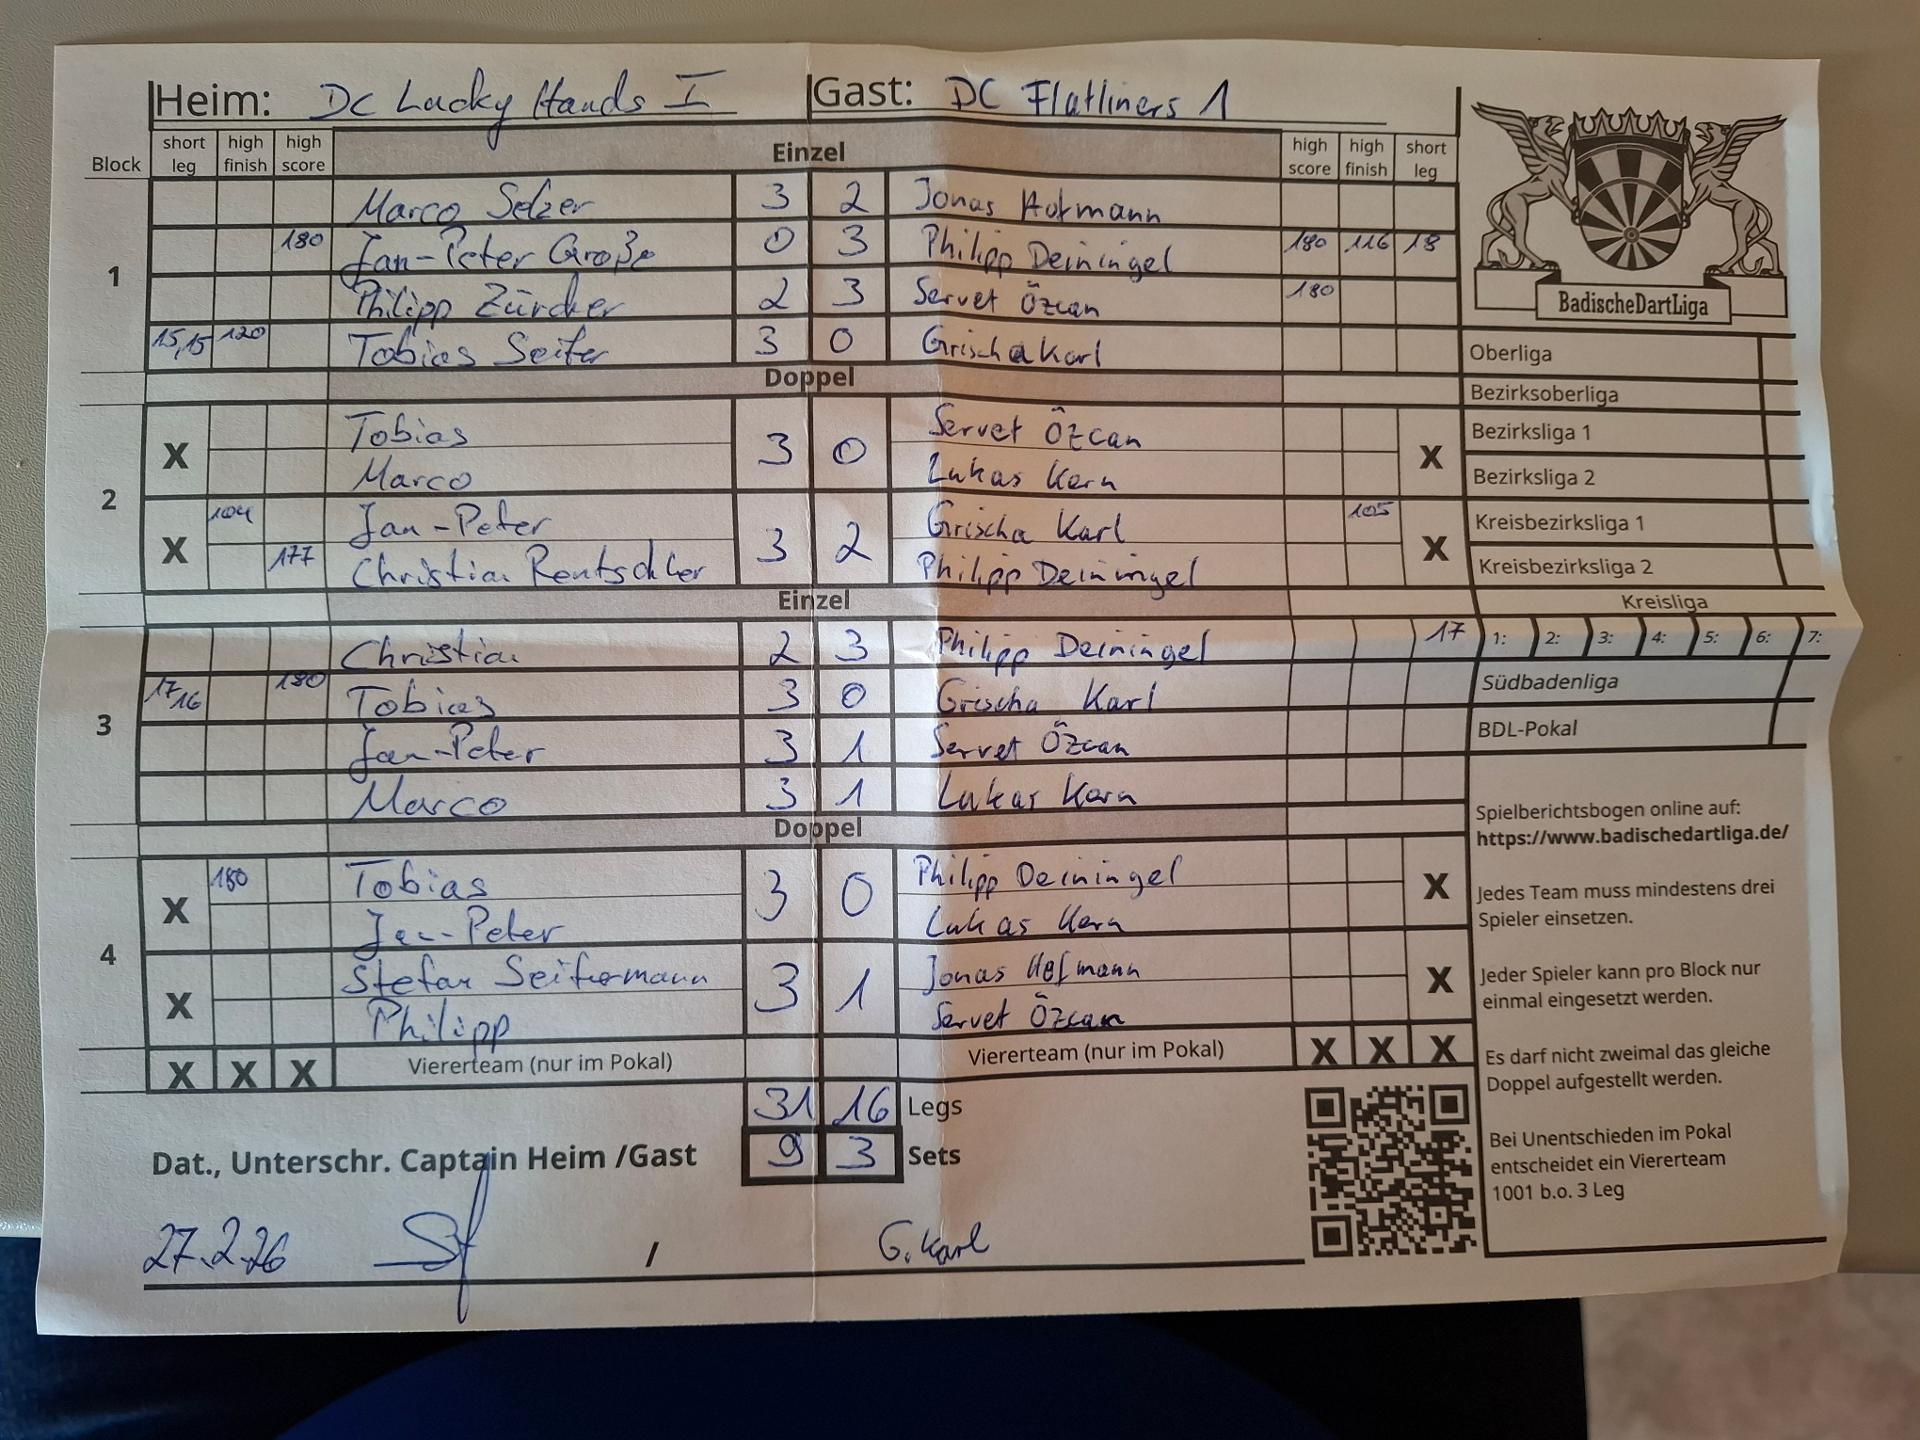 Heim: DC Lucky Hands I Gast: DC Flatliners 1
Block short leg high finish high score Einzel high score high finish short leg
1
Marco Selzer 3 2 Jonas Hofmann
180 Jan-Peter Große 0 3 Philipp Deiningel 180 116 18
Philipp Zürcher 2 3 Servet Özcan 180
15,15 120 Tobias Seifer 3 0 Grischa Karl
Doppel
2
X Tobias 3 0 Servet Özcan X
Marco Lukas Kern
X 104 Jan-Peter 3 2 Grischa Karl 105 X
177 Christian Rentschler Philipp Deiningel
Einzel
3
Christian 2 3 Philipp Deiningel 17
17 16 180 Tobias 3 0 Grischa Karl
Jan-Peter 3 1 Servet Özcan
Marco 3 1 Lukas Kern
Doppel
4
X 180 Tobias 3 0 Philipp Deiningel X
Jan-Peter Lukas Kern
X Stefan Seitermann 3 1 Jonas Hofmann X
Philipp Servet Özcan
X X X Viererteam (nur im Pokal) Viererteam (nur im Pokal) X X X
31 16 Legs
Dat., Unterschr. Captain Heim /Gast 9 3 Sets
27.2.26 / G. Karl
BadischeDartLiga
Oberliga
Bezirksoberliga
Bezirksliga 1
Bezirksliga 2
Kreisbezirksliga 1
Kreisbezirksliga 2
Kreisliga
1: 2: 3: 4: 5: 6: 7:
Südbadenliga
BDL-Pokal
Spielberichtsbogen online auf:
https://www.badischedartliga.de/
Jedes Team muss mindestens drei
Spieler einsetzen.
Jeder Spieler kann pro Block nur
einmal eingesetzt werden.
Es darf nicht zweimal das gleiche
Doppel aufgestellt werden.
Bei Unentschieden im Pokal
entscheidet ein Viererteam
1001 b.o. 3 Leg